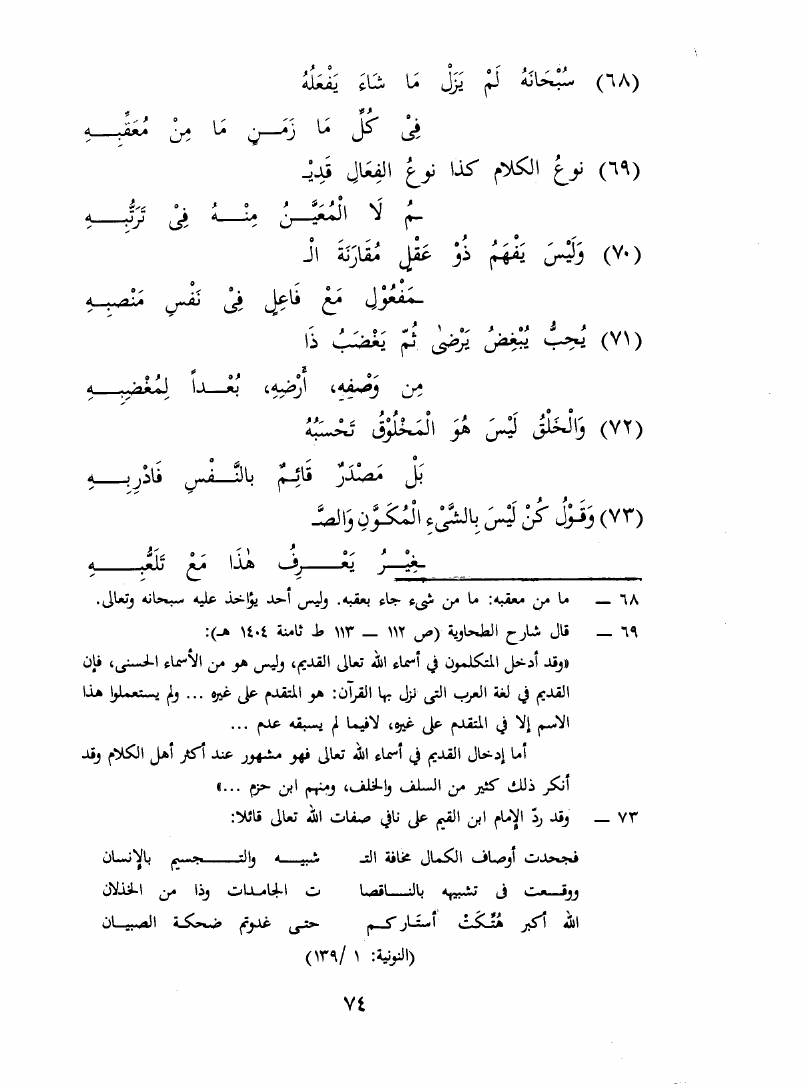 (٦٨) سُبْحَانَهُ لَمْ يَزَلْ مَا شَاءَ يَفْعَلُهُ
فِىْ كُلِّ مَا زَمَـنٍ مَا مِنْ مُعَقِّبِـــهِ
(٦٩) نوعُ الكلامِ كذا نوعُ الفِعَالِ قَدِيْـ
ـمُ لَا الْمُعَيَّـــنُ مِنْـــهُ فِىْ تَرَتُّبِـــهِ
(٧٠) وَلَيْسَ يَفْهَمُ ذُوْ عَقْلٍ مُقَارَنَةَ الْـ
ـمَفْعُوْلِ مَعْ فَاعِلٍ فِىْ نَفْسِ مَنْصِبِـهِ
(٧١) يُحِبُّ يُبْغِضُ يَرْضىٰ ثُمّ يَغْضَبُ ذَا
مِن وَصْفِهِ، أَرْضِهِ، بُعْـــداً لِمُغْضِبِـــهِ
(٧٢) وَالْخَلْقُ لَيْسَ هُوَ الْمَخْلُوْقُ تَحْسَبُهُ
بَلْ مَصْدَرٌ قَائِـمٌ بالنَّـــفْسِ فَادْرِبِـــهِ
(٧٣) وَقَوْلُ كُنْ لَيْسَ بِالشَّيْءِ الْمُكَوَّنِ وَالصَّـ
ـغِيْـــرُ يَعْـــرِفُ هٰذَا مَعْ تَلَعُّبِـــهِ
٦٨ — ما من معقبه: ما من شيء جاء بعقبه. وليس أحد يؤاخذ عليه سبحانه وتعالى.
٦٩ — قال شارح الطحاوية (ص ١١٢ — ١١٣ ط ثامنة ١٤٠٤ هـ):
«وقد أدخل المتكلمون في أسماء الله تعالى القديم، وليس هو من الأسماء الحسنى، فإن
القديم في لغة العرب التى نزل بها القرآن: هو المتقدم على غيره ... ولم يستعملوا هذا
الاسم إلا في المتقدم على غيره، لافيما لم يسبقه عدم ...
أما إدخال القديم في أسماء الله تعالى فهو مشهور عند أكثر أهل الكلام وقد
أنكر ذلك كثير من السلف والخلف، ومنهم ابن حزم ...»
٧٣ — وقد ردّ الإمام ابن القيم على نافي صفات الله تعالى قائلا:
فجحدت أوصاف الكمال مخافة التـ شبيـــه والتـــجسيم بالإنسان
ووقـــعت فى تشبيهه بالنـــاقصا ت الجامـدات وذا من الخذلان
الله أكبر هُتِّكَتْ أستـاركـــم حتـى غدوتم ضحكـة الصبيـــان
(النونية: ١ /١٣٩)
٧٤